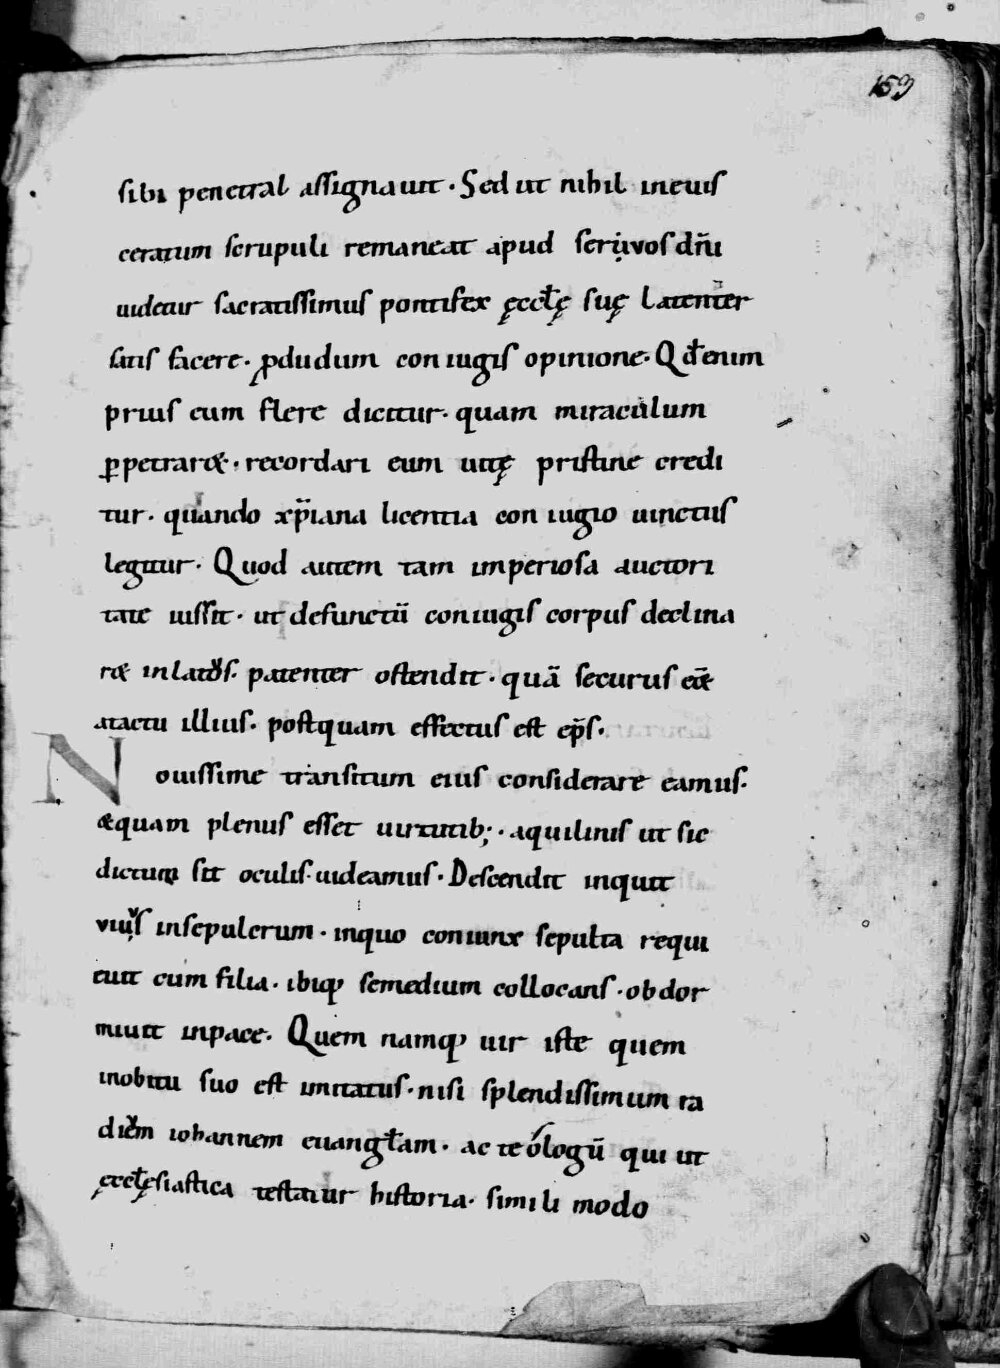 159
sibi penetral assignauit. Sed ut nihil ineuis
ceratum scrupuli remaneat apud seruvos dn̄i
uidetur sacratissimus pontifex ęcctę suę Latent̄er
satis facere. ꝓdudum coniugis opinione. Qđenim
prius eum flere dicitur. quam miraculum
ꝑpetraret. recordari eum uitę pristine credi
tur. quando xp̄iana licentia coniugio uinctus
legitur. Quod autem tam imperiosa auctori
tate iussit. ut defunctū coniugis corpus declina
ret inlatus. patenter ostendit. quā securus eēt
atactu illius. postquam effectus est ep̄s.
Nouissime transitum eius considerare eamus.
etquam plenus esset uirtutib;. aquilinis ut sic
dictum sit oculis. uideamus. Descendit inquit
viuus insepulcrum. inquo coniunx sepulta requi
euit cum filia. ibiq; semedium collocans. obdor
miuit inpace. Quem namq; uir iste quem
inobitu suo est imitatus. nisi splendissimum ra
diu̅m iohannem euangłam. ac teologū qui ut
ęcctęsiastica testatur historia. simili modo